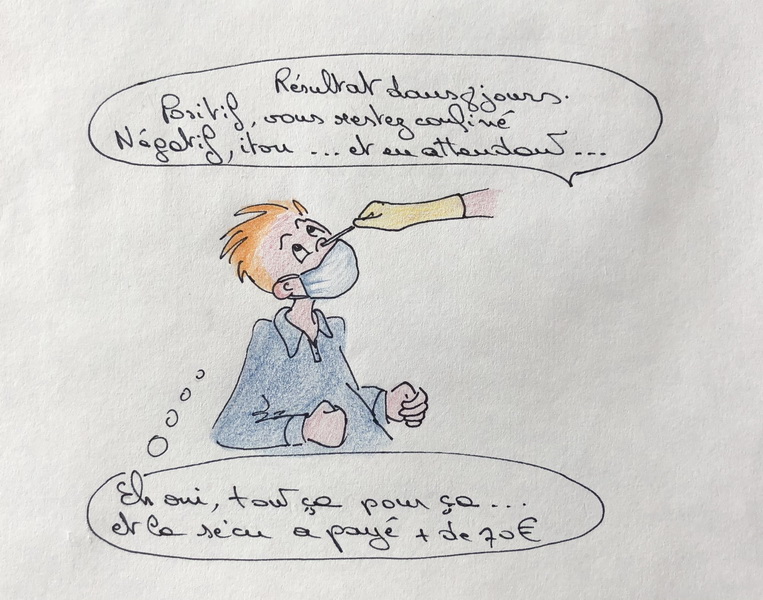 Résultat dans 8 jours.
Positif, vous restez confiné
Négatif, itou ... et en attendant ...
Eh oui, tout ça pour ça ...
et la sécu a payé + de 70€